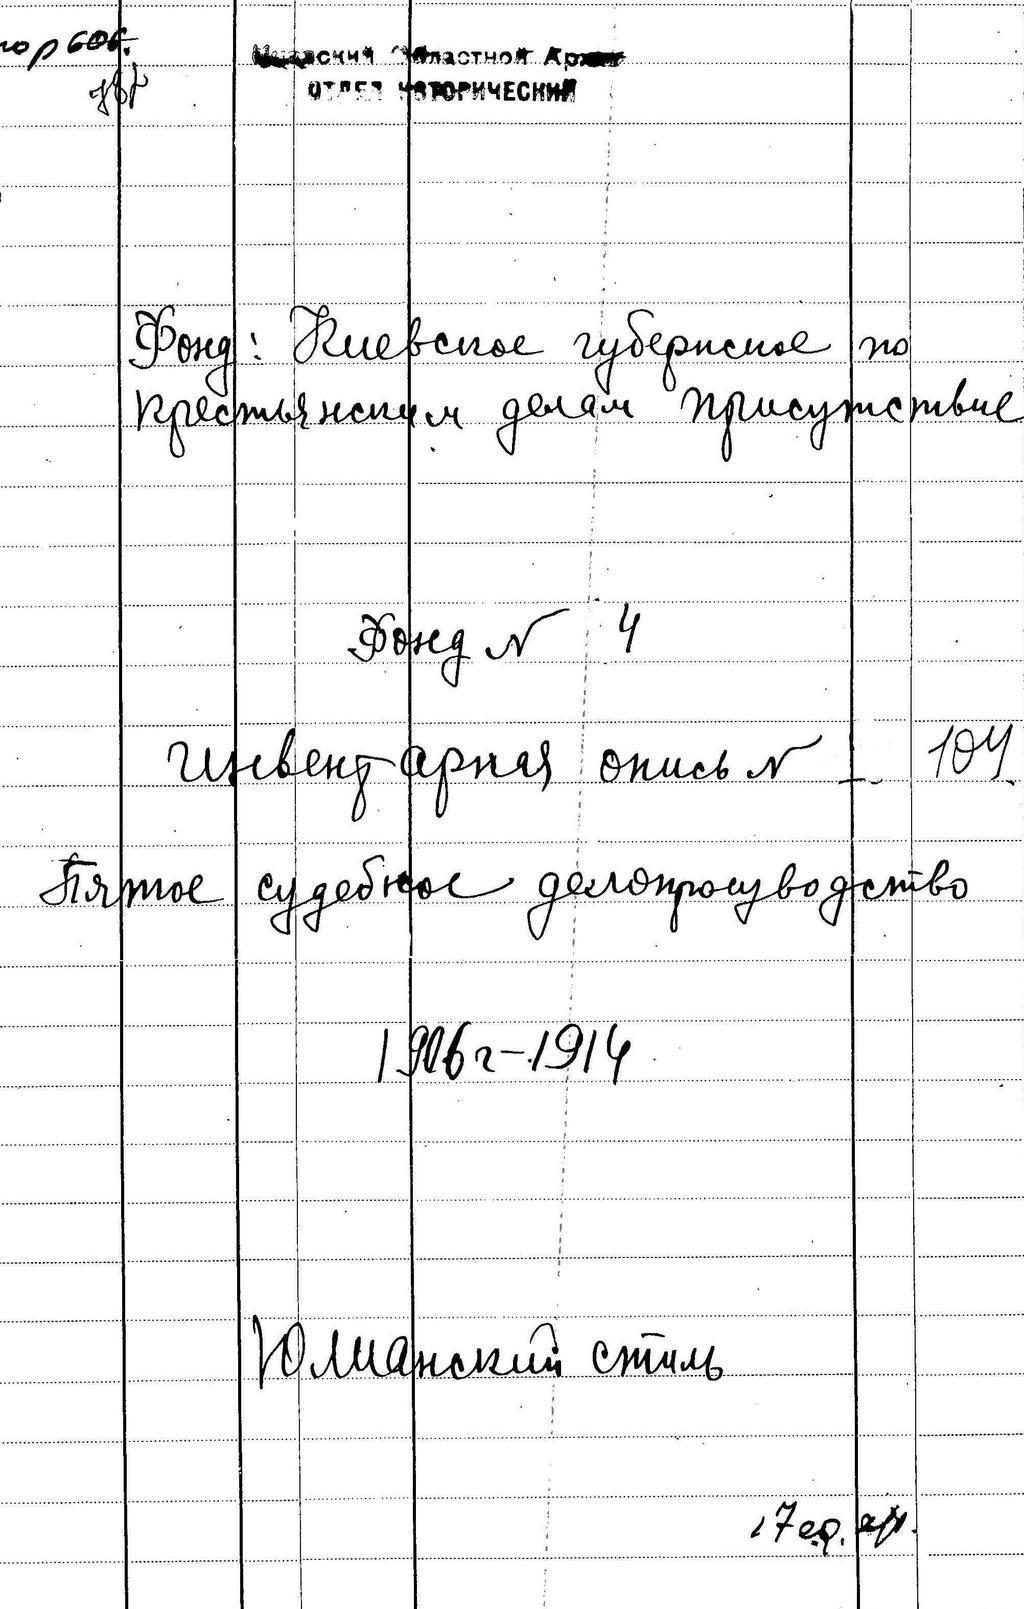 Областной Архив
ОТДЕЛ ИСТОРИЧЕСКИЙ
Фонд: Киевское губернское по
крестьянским делам присутствие
Фонд N 4
Инвентарная опись N 1 104
Пятое судебное делопроизводство
1906 г - 1914
Юлианский стиль
17 ед. хр.